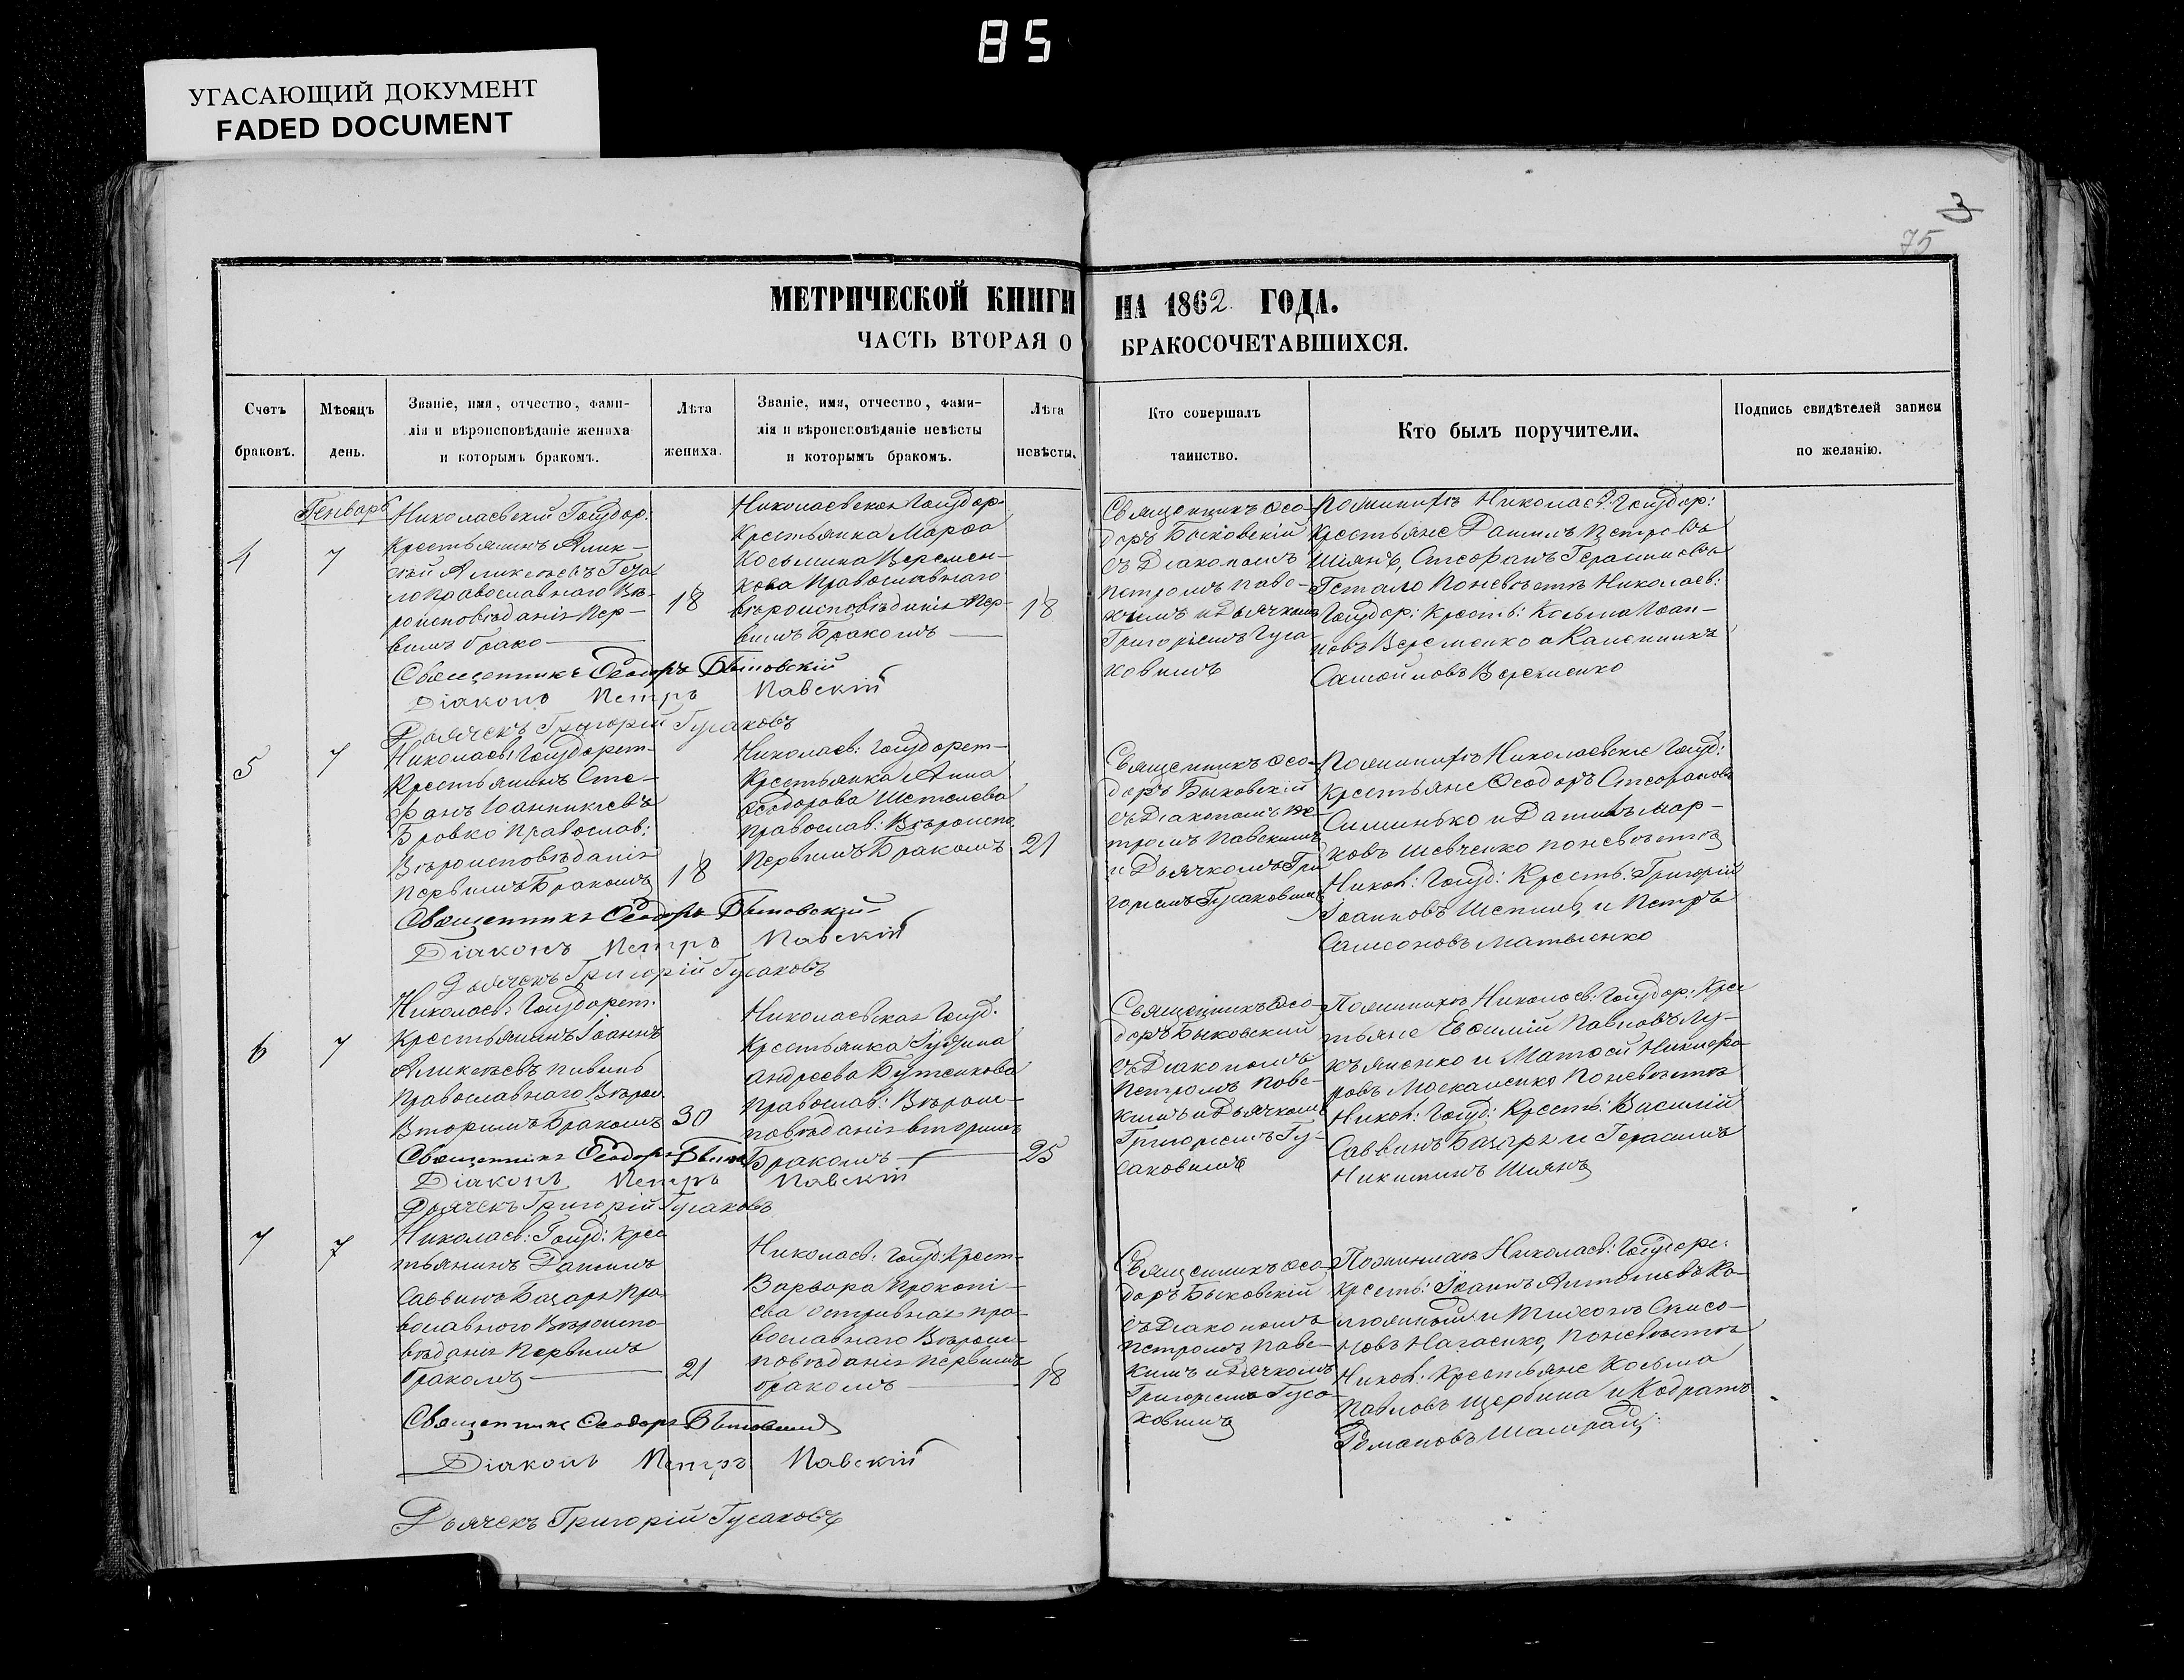 85
УГАСАЮЩИЙ ДОКУМЕНТ
FADED DOCUMENT
3
75
МЕТРИЧЕСКОЙ КНИГИ НА 1862 ГОДА.
ЧАСТЬ ВТОРАЯ О БРАКОСОЧЕТАВШИХСЯ.
Счетъ
браковъ.
Мѣсяцъ
день.
Званіе, имя, отчество, фами-
лія и вѣроисповѣданіе жениха
и которымъ бракомъ.
Лѣта
жениха.
Званіе, имя, отчество, фами-
лія и вѣроисповѣданіе невѣсты
и которымъ бракомъ.
Лѣта
невѣсты.
Кто совершалъ
таинство.
Кто былъ поручители.
Подпись свидѣтелей записи
по желанію.
Генварь
4
7
Николаевскій Госудор.
Крестьянинъ Алик-
сѣй Аликсѣевъ
православнаго Вѣ-
роисповѣданія Пер-
вымъ брако
18
Николаевская Госудор.
Крестьянка Марѳа
Косьмина Веремен-
кова Православнаго
вѣроисповѣданія Пер-
вымъ Бракомъ
18
Священникъ Ѳео-
доръ Быковскій
съ Діакономъ
Петромъ Павс-
кимъ и Дьячкомъ
Григоріемъ Гуса-
ковымъ
Николаев: Госудор:
Крестьяне Данилъ Петровъ
Шіянъ, Стефанъ Герасимовъ
Поневѣстѣ Николаев:
Госудор: Крестьь: Косьма Іоан-
новъ Веременко и Калениикъ
Самойловъ Веременко
Священникъ Ѳеодоръ Быковскій
Діаконъ Петръ Павскій
Дьячекъ Григорій Гусаковъ
5
7
Николаев: Госудорст-
Крестьянинъ Сте-
фанъ Іоанникіевъ
Бровко Православ:
Вѣроисповѣданія
Первымъ Бракомъ
18
Николаев: Госудорст-
Крестьянка Анна
Ѳеодорова
Православ: Вѣроиспо
Первымъ Бракомъ
21
Священникъ Ѳео-
доръ Быковскій
съ Діакономъ Пе-
тромъ Павскимъ
и Дьячкомъ Гри
горіемъ Гусаковымъ
Николаевскіе Госуд:
Крестьяне Ѳеодоръ Стефановъ
Симинько и Данилъ Мар-
ковъ Шевченко поневѣстѣ
Никол: Госуд: Кресть: Григорій
Іоанновъ и Петръ
Самсоновъ Матвіенко
Священникъ Ѳеодоръ Быковскій
Діаконъ Петръ Павскій
Дьячекъ Григорій Гусаковъ
6
7
Николаев: Госудорст.
Крестьянинъ Іоаннъ
Аликсѣевъ Пивень
Православнаго Вѣрои
Вторымъ Бракомъ
30
Николаевская Госуд.
Крестьянка
Андреева Бутенкова
Православ: Вѣроис-
повѣданія вторымъ
Бракомъ
25
Священникъ Ѳео-
доръ Быковский
съ Діакономъ
Петромъ Павс-
кимъ и Дьячкомъ
Григоріемъ Гу-
саковымъ
Николаев: Госудор: Крес
тьяне Евѳимій Павловъ Лу-
къяненко и Матѳей Никифо-
ровъ Москаленко Поневѣстѣ
Никол: Госуд: Кресть: Василій
Саввинъ Базаръ и Герасимъ
Никитинъ Шіянъ
Священникъ Ѳеодоръ
Діаконъ Петръ Павскій
Дьячекъ Григорій Гусаковъ
7
7
Николаев: Госуд: Крес
тьянинъ Данилъ
Саввинъ Базаръ Пра
вославного Вѣроиспо
вѣданія Первымъ
бракомъ
21
Николаев: Госуд: Крест-
Варвара Прокопі-
ева Остривная пра-
вославнаго Вѣроис-
повѣданія первымъ
бракомъ
18
Священникъ Ѳео-
доръ Быковскій
съ Діакономъ
Петромъ Павс-
кимъ и Дячкомъ
Григоріемъ Гуса-
ковымъ
Николаев: Госудорс:
Кресть: Іоаннъ
и
Поневѣстѣ
Никол: Крестьяне Косьма
Павловъ Щербина и Кодратъ
Романовъ Шамрай
Священникъ Ѳеодоръ Быковскій
Діаконъ Петръ Павскій
Дьячекъ Григорій Гусаковъ